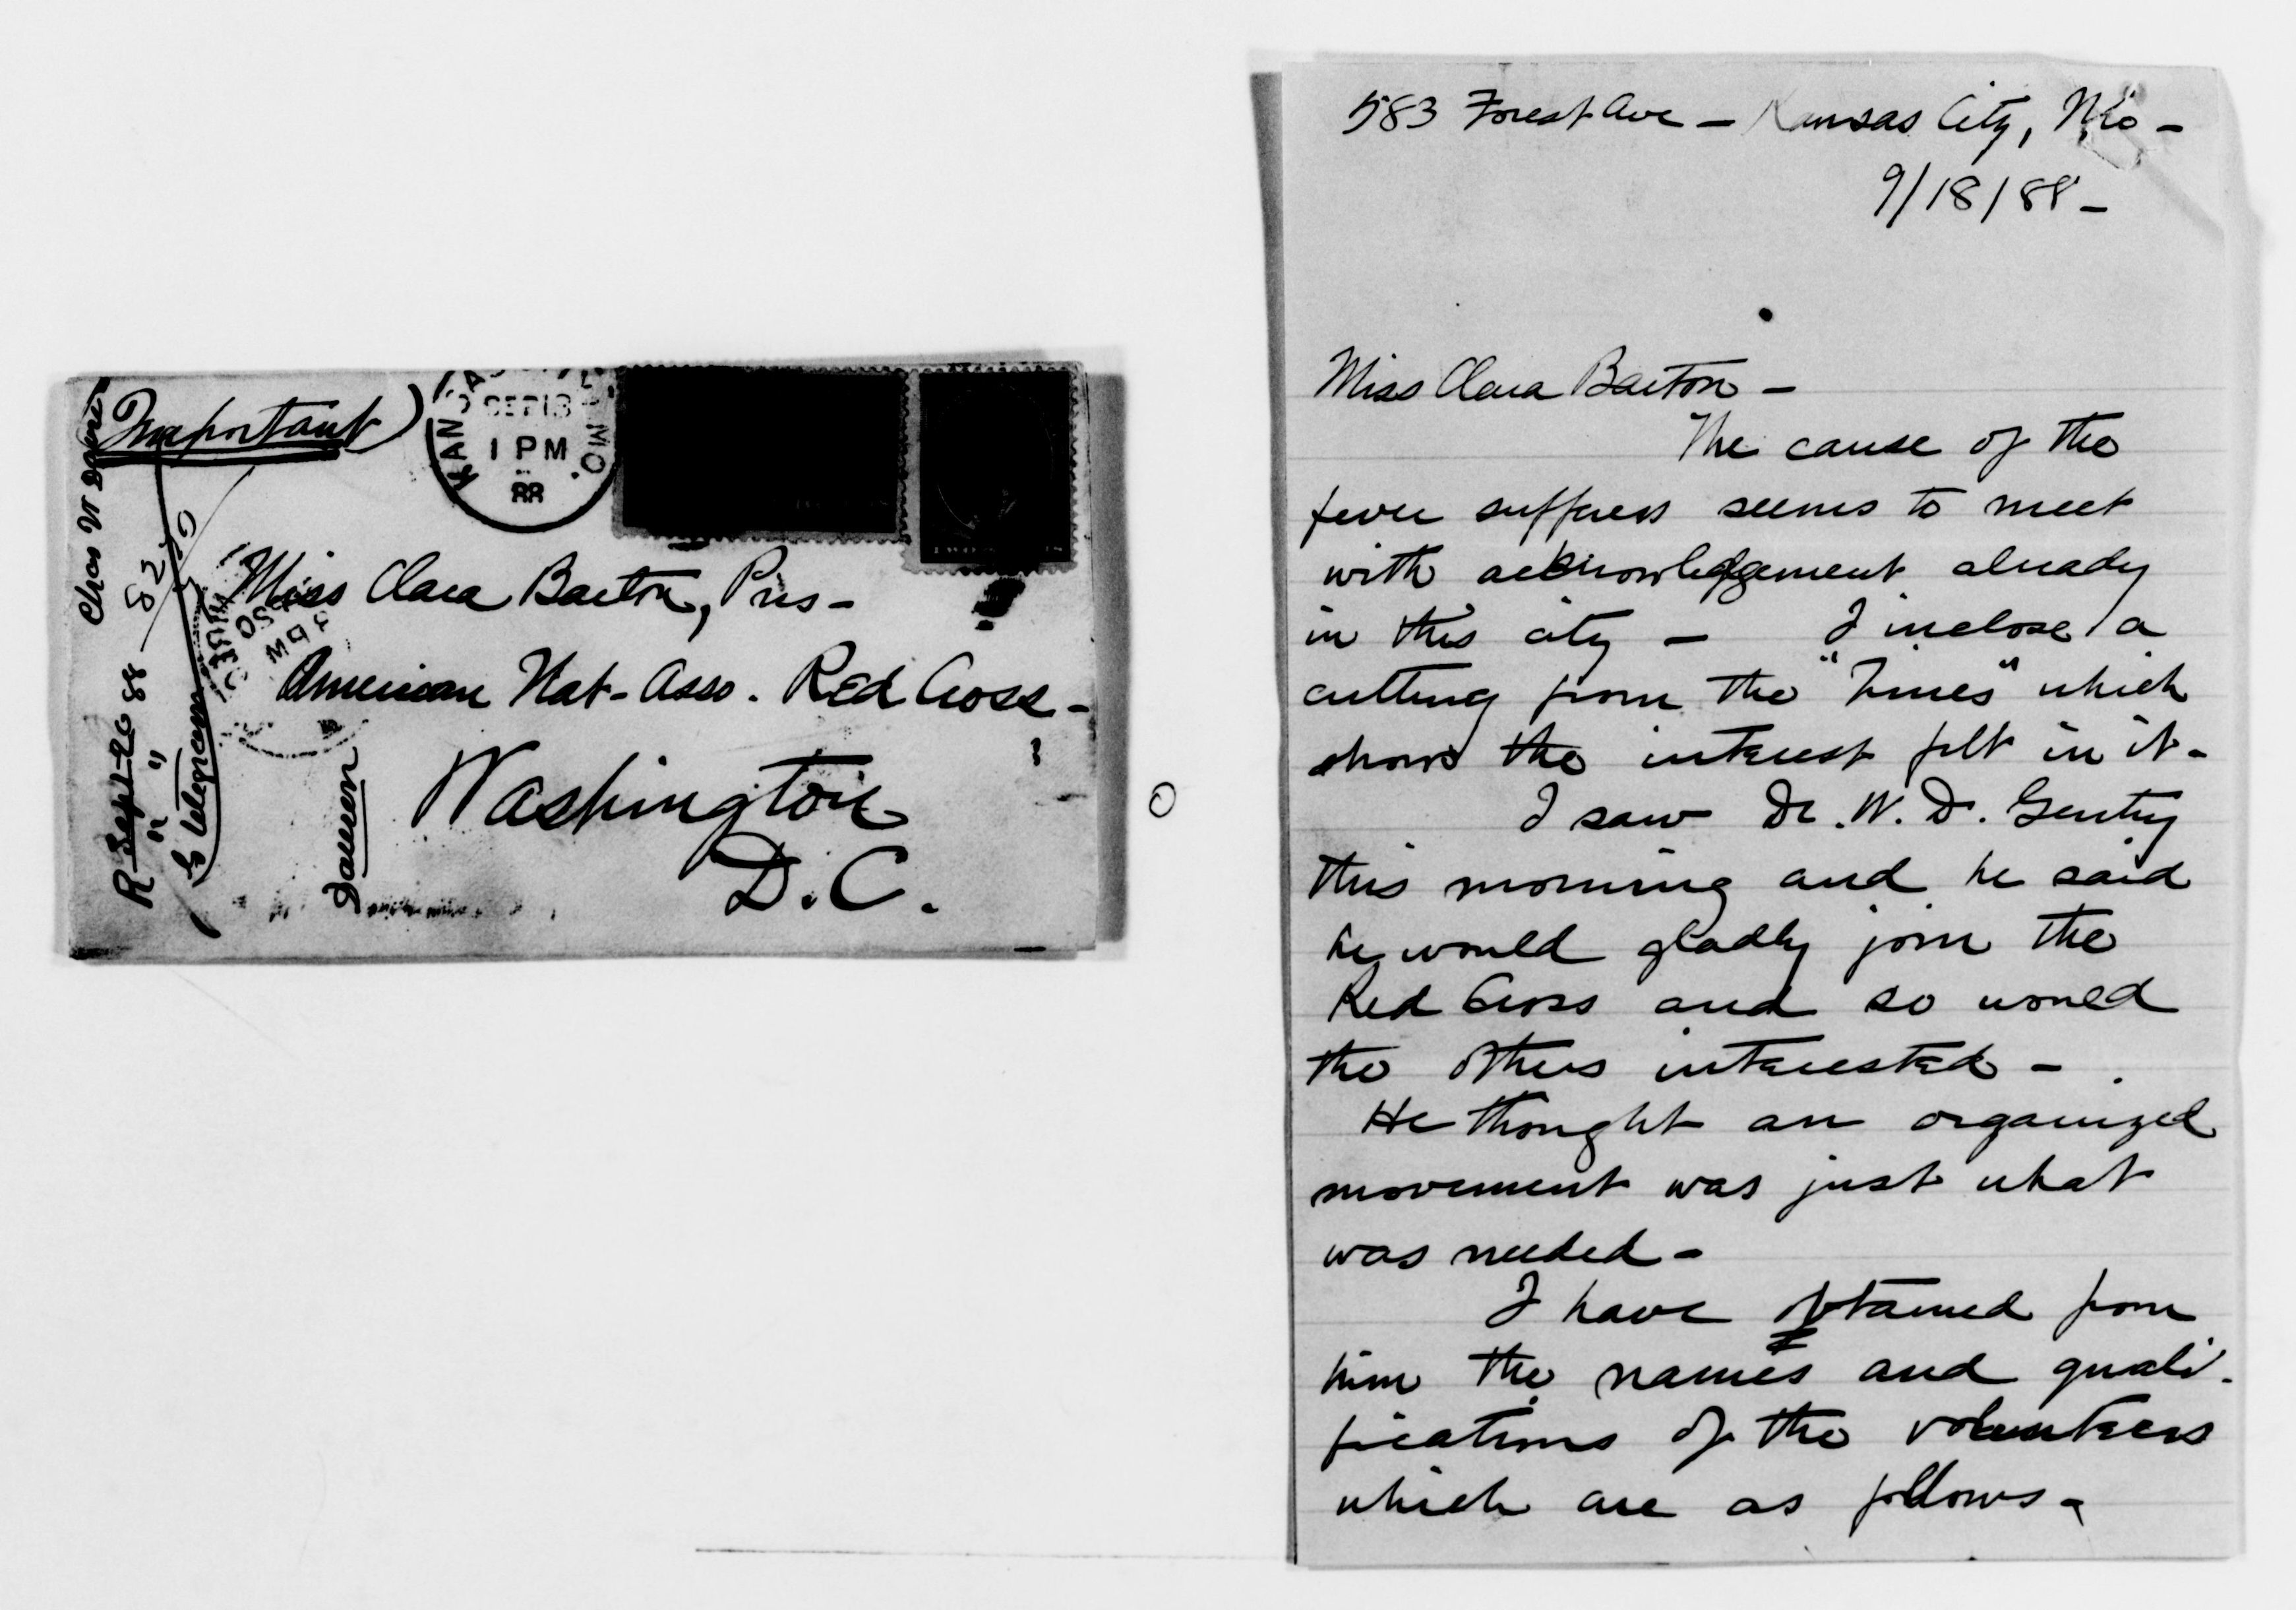 Important
KANSAS CITY MO.
SEP 18
1 PM
88
Miss Clara Barton, Pres-
American Nat- Asso. Red Cross-
Washington
D.C.
Chas W
R Sept 20 88
" "
by telegram
Dawen
583 Forest Ave - Kansas City, Mo -
9/18/88 -
Miss Clara Barton -
The cause of the
fever sufferers seems to meet
with acknowledgement already
in this city - I inclose a
cutting from the "Times" which
shows the interest felt in it -
I saw Dr. W. D. Gentry
this morning and he said
he would gladly join the
Red Cross and so would
the others interested -
He thought an organized
movement was just what
was needed -
I have obtained from
him the names and quali-
fications of the volunteers
which are as follows -